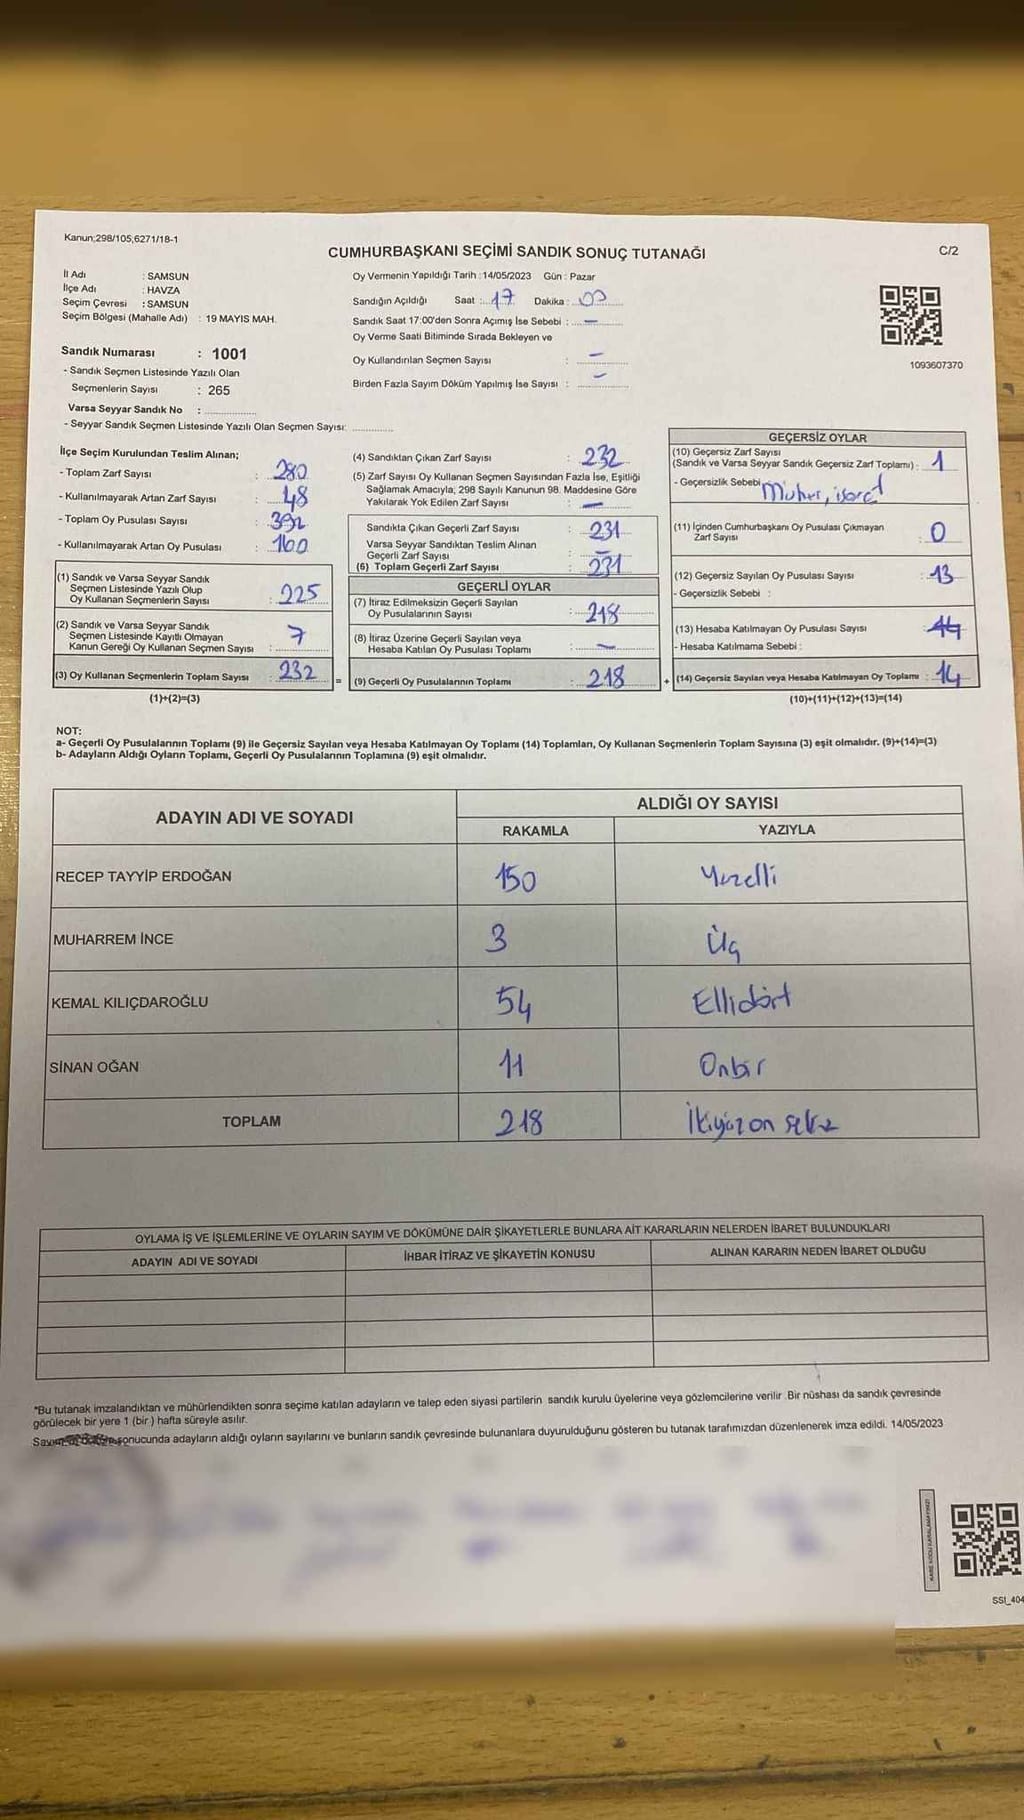 Kanun;298/105,6271/18-1
CUMHURBAŞKANI SEÇİMİ SANDIK SONUÇ TUTANAĞI
C/2
İl Adı : SAMSUN
İlçe Adı : HAVZA
Seçim Çevresi : SAMSUN
Seçim Bölgesi (Mahalle Adı) : 19 MAYIS MAH.
Sandık Numarası : 1001
- Sandık Seçmen Listesinde Yazılı Olan
Seçmenlerin Sayısı : 265
Varsa Seyyar Sandık No : ................
- Seyyar Sandık Seçmen Listesinde Yazılı Olan Seçmen Sayısı: .............
Oy Vermenin Yapıldığı Tarih : 14/05/2023 Gün : Pazar
Sandığın Açıldığı Saat : 17 Dakika : 00
Sandık Saat 17:00'den Sonra Açımış İse Sebebi : —
Oy Verme Saati Bitiminde Sırada Bekleyen ve
Oy Kullandırılan Seçmen Sayısı : —
Birden Fazla Sayım Döküm Yapılmış İse Sayısı : —
1093607370
İlçe Seçim Kurulundan Teslim Alınan;
- Toplam Zarf Sayısı : 280
- Kullanılmayarak Artan Zarf Sayısı : 48
- Toplam Oy Pusulası Sayısı : 392
- Kullanılmayarak Artan Oy Pusulası : 160
(1) Sandık ve Varsa Seyyar Sandık
Seçmen Listesinde Yazılı Olup
Oy Kullanan Seçmenlerin Sayısı : 225
(2) Sandık ve Varsa Seyyar Sandık
Seçmen Listesinde Kayıtlı Olmayan
Kanun Gereği Oy Kullanan Seçmen Sayısı : 7
(3) Oy Kullanan Seçmenlerin Toplam Sayısı : 232
(1)+(2)=(3)
=
(4) Sandıktan Çıkan Zarf Sayısı : 232
(5) Zarf Sayısı Oy Kullanan Seçmen Sayısından Fazla İse, Eşitliği
Sağlamak Amacıyla; 298 Sayılı Kanunun 98. Maddesine Göre
Yakılarak Yok Edilen Zarf Sayısı : —
Sandıkta Çıkan Geçerli Zarf Sayısı : 231
Varsa Seyyar Sandıktan Teslim Alınan
Geçerli Zarf Sayısı : —
(6) Toplam Geçerli Zarf Sayısı : 231
GEÇERLİ OYLAR
(7) İtiraz Edilmeksizin Geçerli Sayılan
Oy Pusulalarının Sayısı : 218
(8) İtiraz Üzerine Geçerli Sayılan veya
Hesaba Katılan Oy Pusulası Toplamı : —
(9) Geçerli Oy Pusulalarının Toplamı : 218
+
GEÇERSİZ OYLAR
(10) Geçersiz Zarf Sayısı
(Sandık ve Varsa Seyyar Sandık Geçersiz Zarf Toplamı) : 1
- Geçersizlik Sebebi
(11) İçinden Cumhurbaşkanı Oy Pusulası Çıkmayan
Zarf Sayısı : 0
(12) Geçersiz Sayılan Oy Pusulası Sayısı : 13
- Geçersizlik Sebebi :
(13) Hesaba Katılmayan Oy Pusulası Sayısı :
- Hesaba Katılmama Sebebi :
(14) Geçersiz Sayılan veya Hesaba Katılmayan Oy Toplamı : 14
(10)+(11)+(12)+(13)=(14)
NOT:
a- Geçerli Oy Pusulalarının Toplamı (9) ile Geçersiz Sayılan veya Hesaba Katılmayan Oy Toplamı (14) Toplamları, Oy Kullanan Seçmenlerin Toplam Sayısına (3) eşit olmalıdır. (9)+(14)=(3)
b- Adayların Aldığı Oyların Toplamı, Geçerli Oy Pusulalarının Toplamına (9) eşit olmalıdır.
ADAYIN ADI VE SOYADI ALDIĞI OY SAYISI
RAKAMLA YAZIYLA
RECEP TAYYİP ERDOĞAN 150 Yüzelli
MUHARREM İNCE 3 Üç
KEMAL KILIÇDAROĞLU 54 Ellidört
SİNAN OĞAN 11 Onbir
TOPLAM 218 İkiyüz on sekiz
OYLAMA İŞ VE İŞLEMLERİNE VE OYLARIN SAYIM VE DÖKÜMÜNE DAİR ŞİKAYETLERLE BUNLARA AİT KARARLARIN NELERDEN İBARET BULUNDUKLARI
ADAYIN ADI VE SOYADI İHBAR İTİRAZ VE ŞİKAYETİN KONUSU ALINAN KARARIN NEDEN İBARET OLDUĞU
*Bu tutanak imzalandıktan ve mühürlendikten sonra seçime katılan adayların ve talep eden siyasi partilerin sandık kurulu üyelerine veya gözlemcilerine verilir. Bir nüshası da sandık çevresinde
görülecek bir yere 1 (bir) hafta süreyle asılır.
sonucunda adayların aldığı oyların sayılarını ve bunların sandık çevresinde bulunanlara duyurulduğunu gösteren bu tutanak tarafımızdan düzenlenerek imza edildi. 14/05/2023
KARE KODU KARALAMAYINIZ!
SSI_404